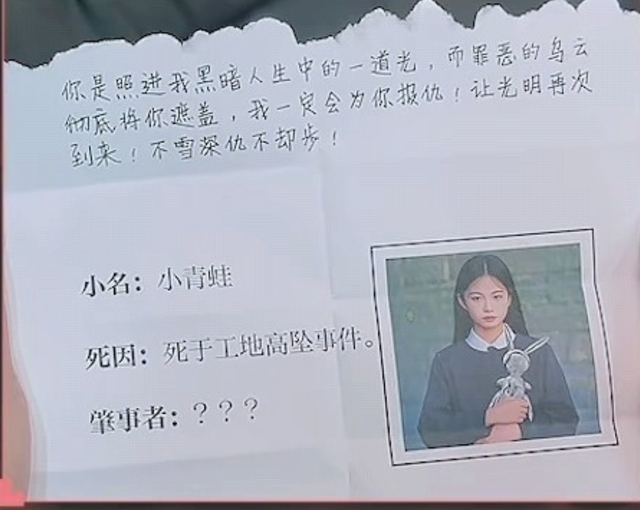 你是照进我黑暗人生中的一道光，而罪恶的乌云
彻底将你遮盖，我一定会为你报仇！让光明再次
到来！不雪深仇不却步！
小名：小青蛙
死因：死于工地高坠事件。
肇事者：？？？